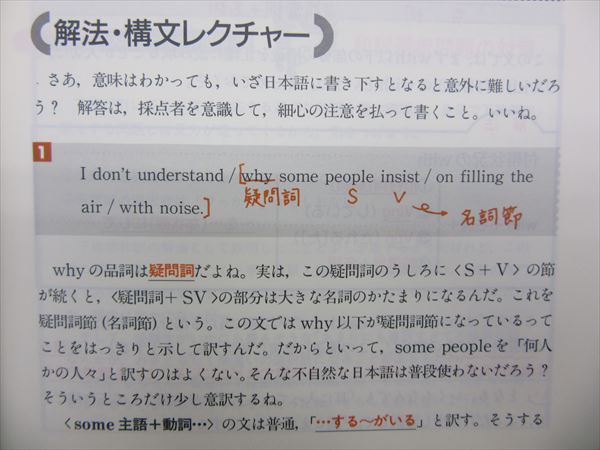 解法・構文レクチャー
さあ，意味はわかっても，いざ日本語に書き下すとなると意外に難しいだろ
う？　解答は，採点者を意識して，細心の注意を払って書くこと。いいね。
1
I don't understand / [why some people insist / on filling the
疑問詞 S V 名詞節
air / with noise.]
whyの品詞は疑問詞だよね。実は，この疑問詞のうしろに〈S＋V〉の節
が続くと，〈疑問詞＋SV〉の部分は大きな名詞のかたまりになるんだ。これを
疑問詞節（名詞節）という。この文ではwhy以下が疑問詞節になっているって
ことをはっきりと示して訳すんだ。だからといって，some peopleを「何人
かの人々」と訳すのはよくない。そんな不自然な日本語は普段使わないだろう？
そういうところだけ少し意訳するね。
〈some 主語＋動詞…〉の文は普通，「…する〜がいる」と訳す。そうする